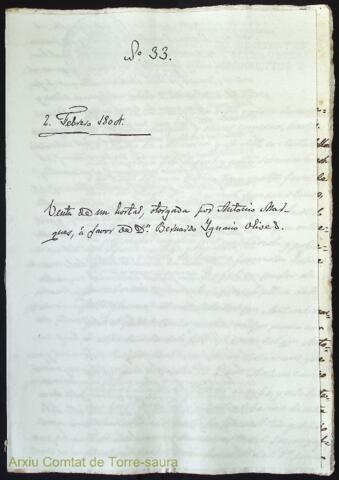 Nº 33.
2. Febrero 1804.
Venta de un hortal, otorgada por Antonio Mar-
ques, á favor de Dⁿ. Bernardo Ygnacio Olives.
Arxiu Comtat de Torre-saura